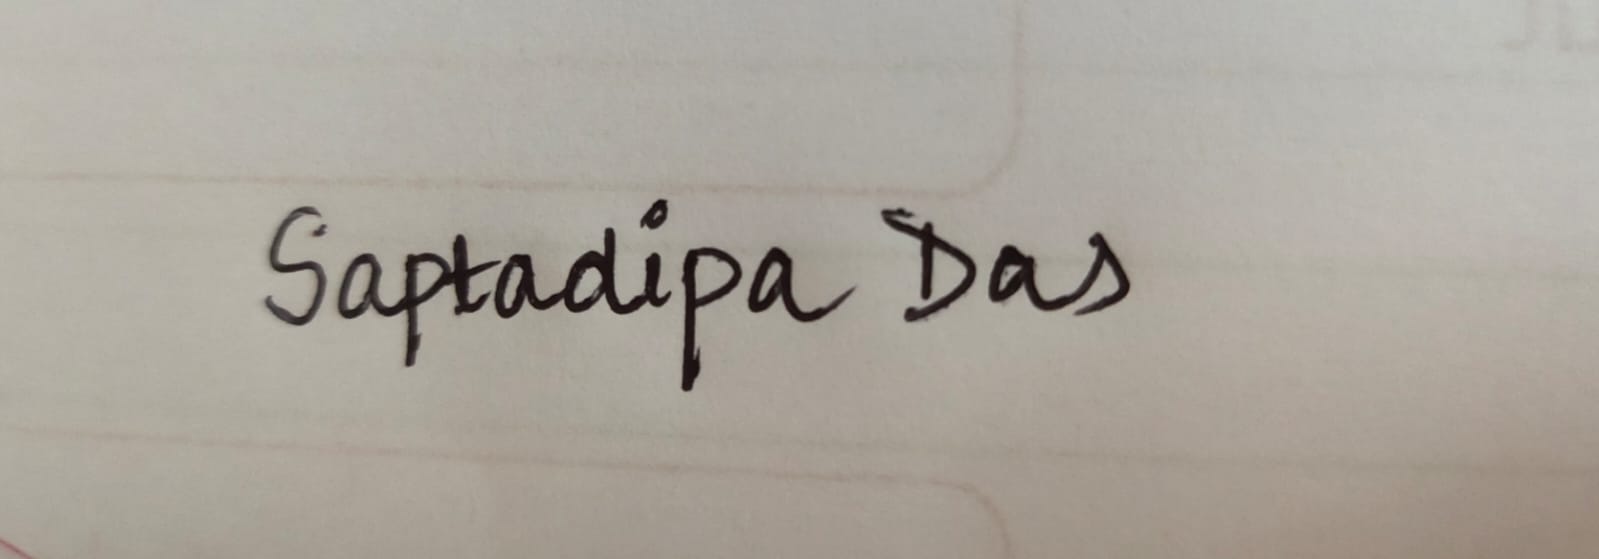 Saptadipa Das